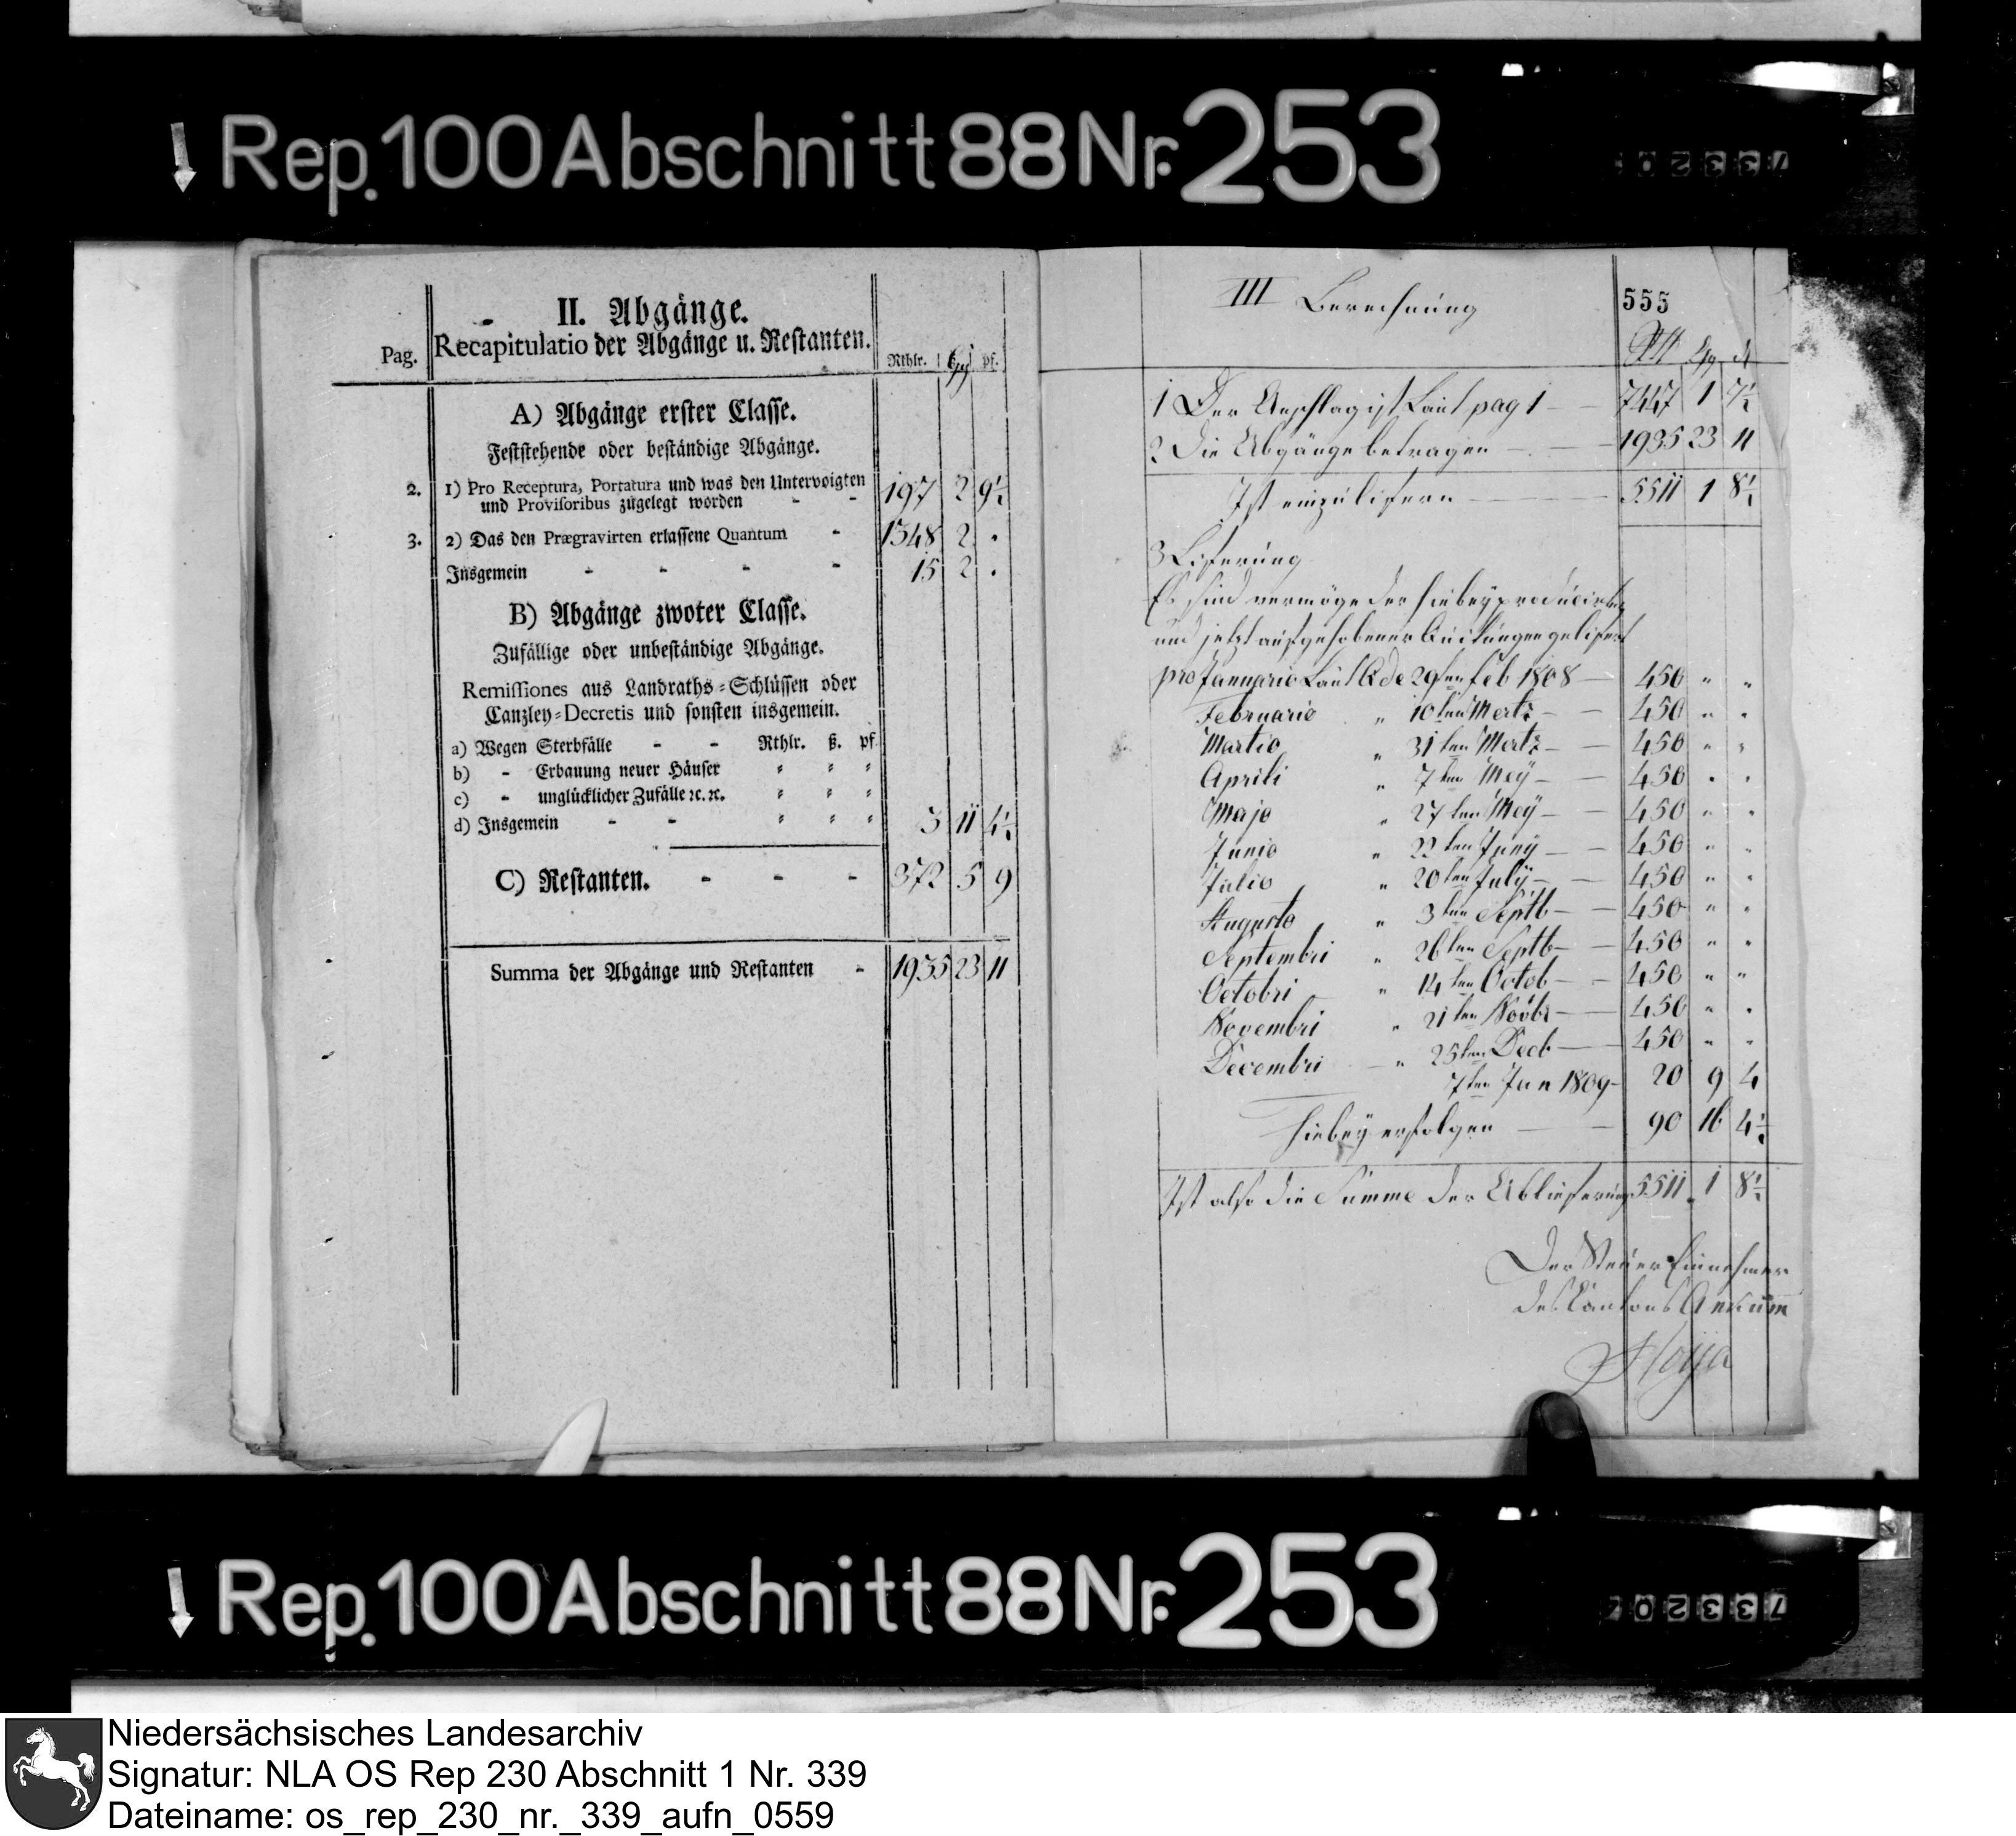 Rep. 100 Abschnitt 88 Nr. 253
II. Abgänge.
Recapitulatio der Abgänge u. Restanten.
Pag. Rthlr. ggl pf.
A) Abgänge erster Classe.
Feststehende oder beständige Abgänge.
2. 1) Pro Receptura, Portatura und was den Untervoigten
und Provisoribus zugelegt worden - - 197 2 9½
3. 2) Das den Prægravirten erlassene Quantum - 1348 2 .
Insgemein - - - - 15 2 .
B) Abgänge zwoter Classe.
Zufällige oder unbeständige Abgänge.
Remissiones aus Landraths-Schlüssen oder
Canzley-Decretis und sonsten insgemein.
a) Wegen Sterbfälle - - Rthlr. ß. pf
b) - Erbauung neuer Häuser " " "
c) - unglücklicher Zufälle ꝛc. ꝛc. " " "
d) Insgemein - - " " " 3 11 4½
C) Restanten. - - - 372 5 9
Summa der Abgänge und Restanten - 1935 23 11
III Berechnung
555
1 Der Anschlag ist Laut pag 1 — 7447 1 7½
2 Die Abgänge betragen — 1935 23 11
Ist einzulifern — 5511 1 8½
3 Liferung
Es sind vermöge der hiebey producirten
und jetzt aufgehobener Quitungen gelifert
pro Januario Laut Q de 29ten Feb 1808 — 450 " "
Februario " 10ten Mertz — 450 " "
Martio " 31ten Mertz — 450 " "
Aprili " 7ten Mey — 450 " "
Majo " 27ten Mey — 450 " "
Junio " 22ten Juny — 450 " "
Julio " 20ten July — 450 " "
Augusto " 3ten Septb — 450 " "
Septembri " 26ten Septb — 450 " "
Octobri " 14ten Octob — 450 " "
Novembri " 21ten Novbr — 450 " "
Decembri — " 25ten Decb — 450 " "
7ten Jan 1809 — 20 9 4
hiebey erfolgen — 90 16 4½
Ist also die Summe der Ablieferung 5511 1 8½
Der Steuer Einnehmer
des Cantons Ankum
Hoya
Rep. 100 Abschnitt 88 Nr. 253
Niedersächsisches Landesarchiv
Signatur: NLA OS Rep 230 Abschnitt 1 Nr. 339
Dateiname: os_rep_230_nr._339_aufn_0559